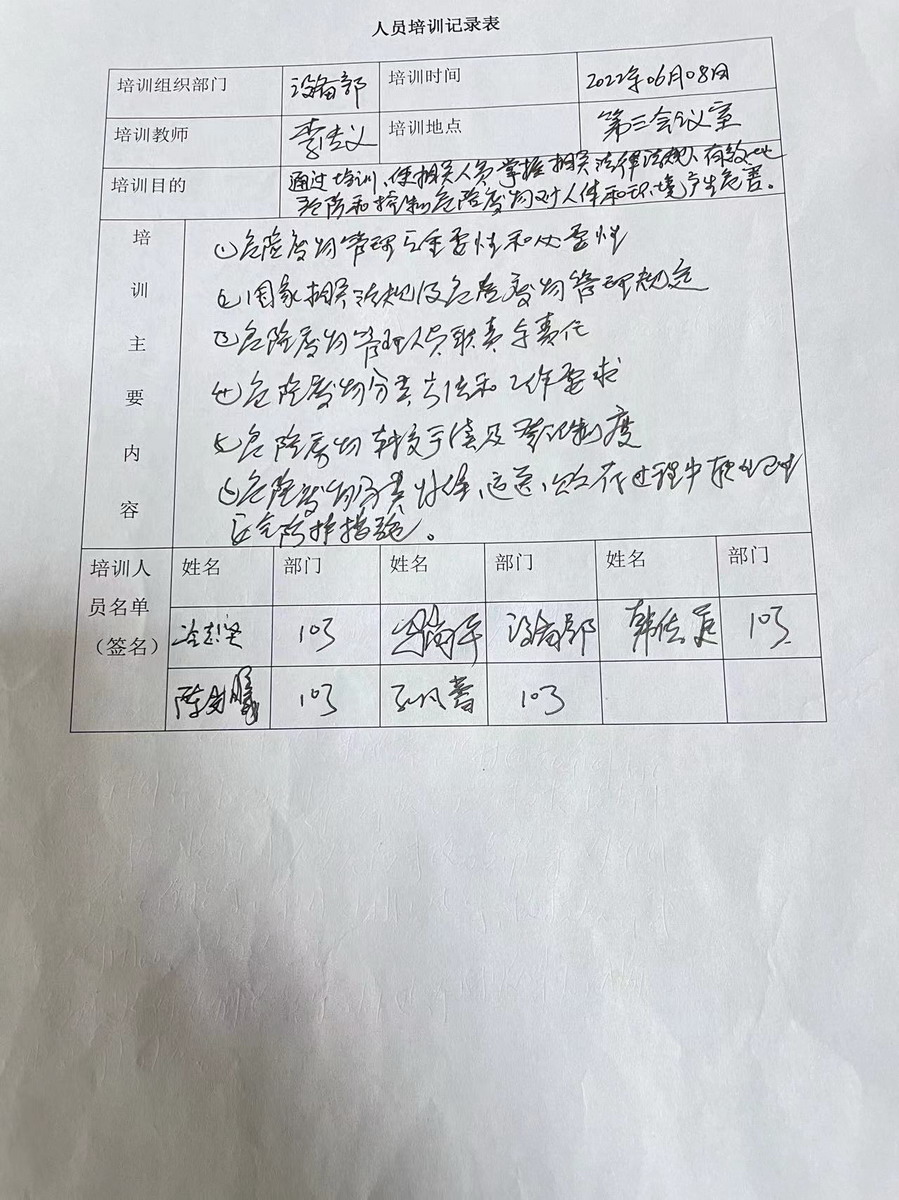 人员培训记录表
培训组织部门 设备部 培训时间 2022年06月08日
培训教师 培训地点 第三会议室
培训目的 通过培训、使相关人员掌握相关法律法规、有效地
预防和控制危险废物对人体和环境产生危害。
培训主要内容
危险废物管理重要性和必要性
国家相关法规及危险废物管理规定
危险废物管理人员职责与责任
危险废物分类方法和工作要求
危险废物转移手续及登记制度
危险废物分类 过程中
安全防护措施。
培训人员名单(签名) 姓名 部门 姓名 部门 姓名 部门
103 设备部 103
103 103